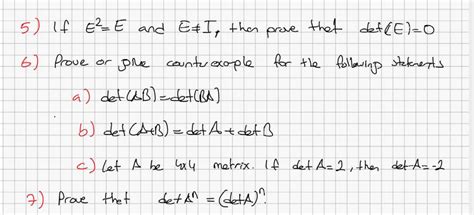 5) If E²=E and E≠I, then prove that det(E)=0
6) Prove or give counterexample for the following statements
a) det(AB)=det(BA)
b) det(A+B)=detA+detB
c) Let A be 4x4 matrix. If detA=2, then det-A=-2
7) Prove that detAⁿ=(detA)ⁿ.